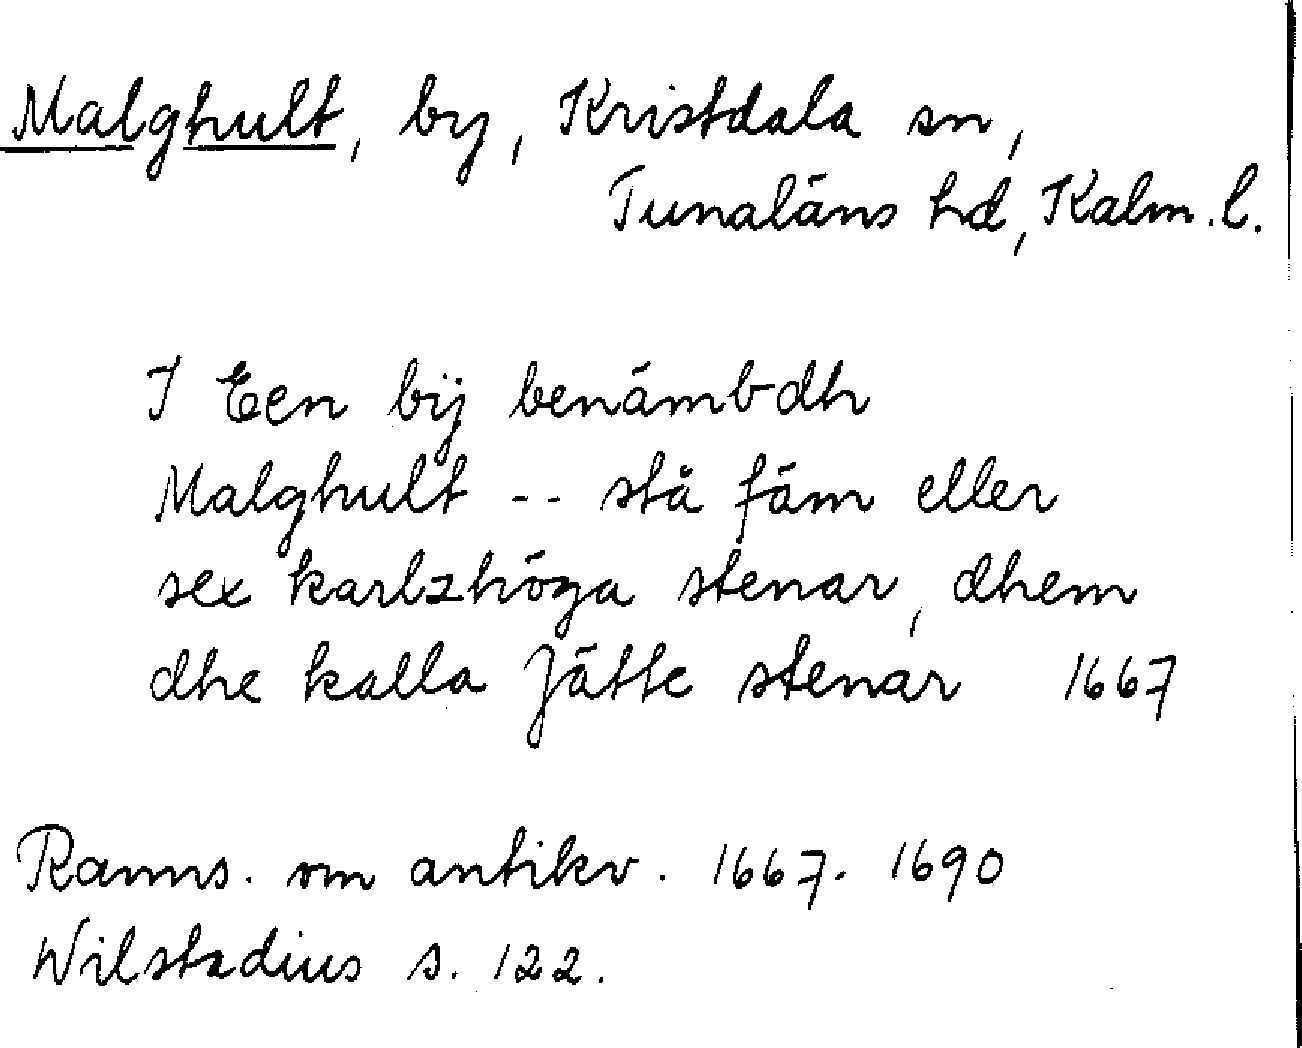 Malghult, by, Kristdala sn,
Tunaläns hd, Kalm. l.
I Een bij benämbdh
Malghult -- stå fäm eller
sex karlzhöga stenar, dhem
dhe kalla Jätte stenar 1667
Ranns. om antikv. 1667-1690
Wilstadius s. 122.